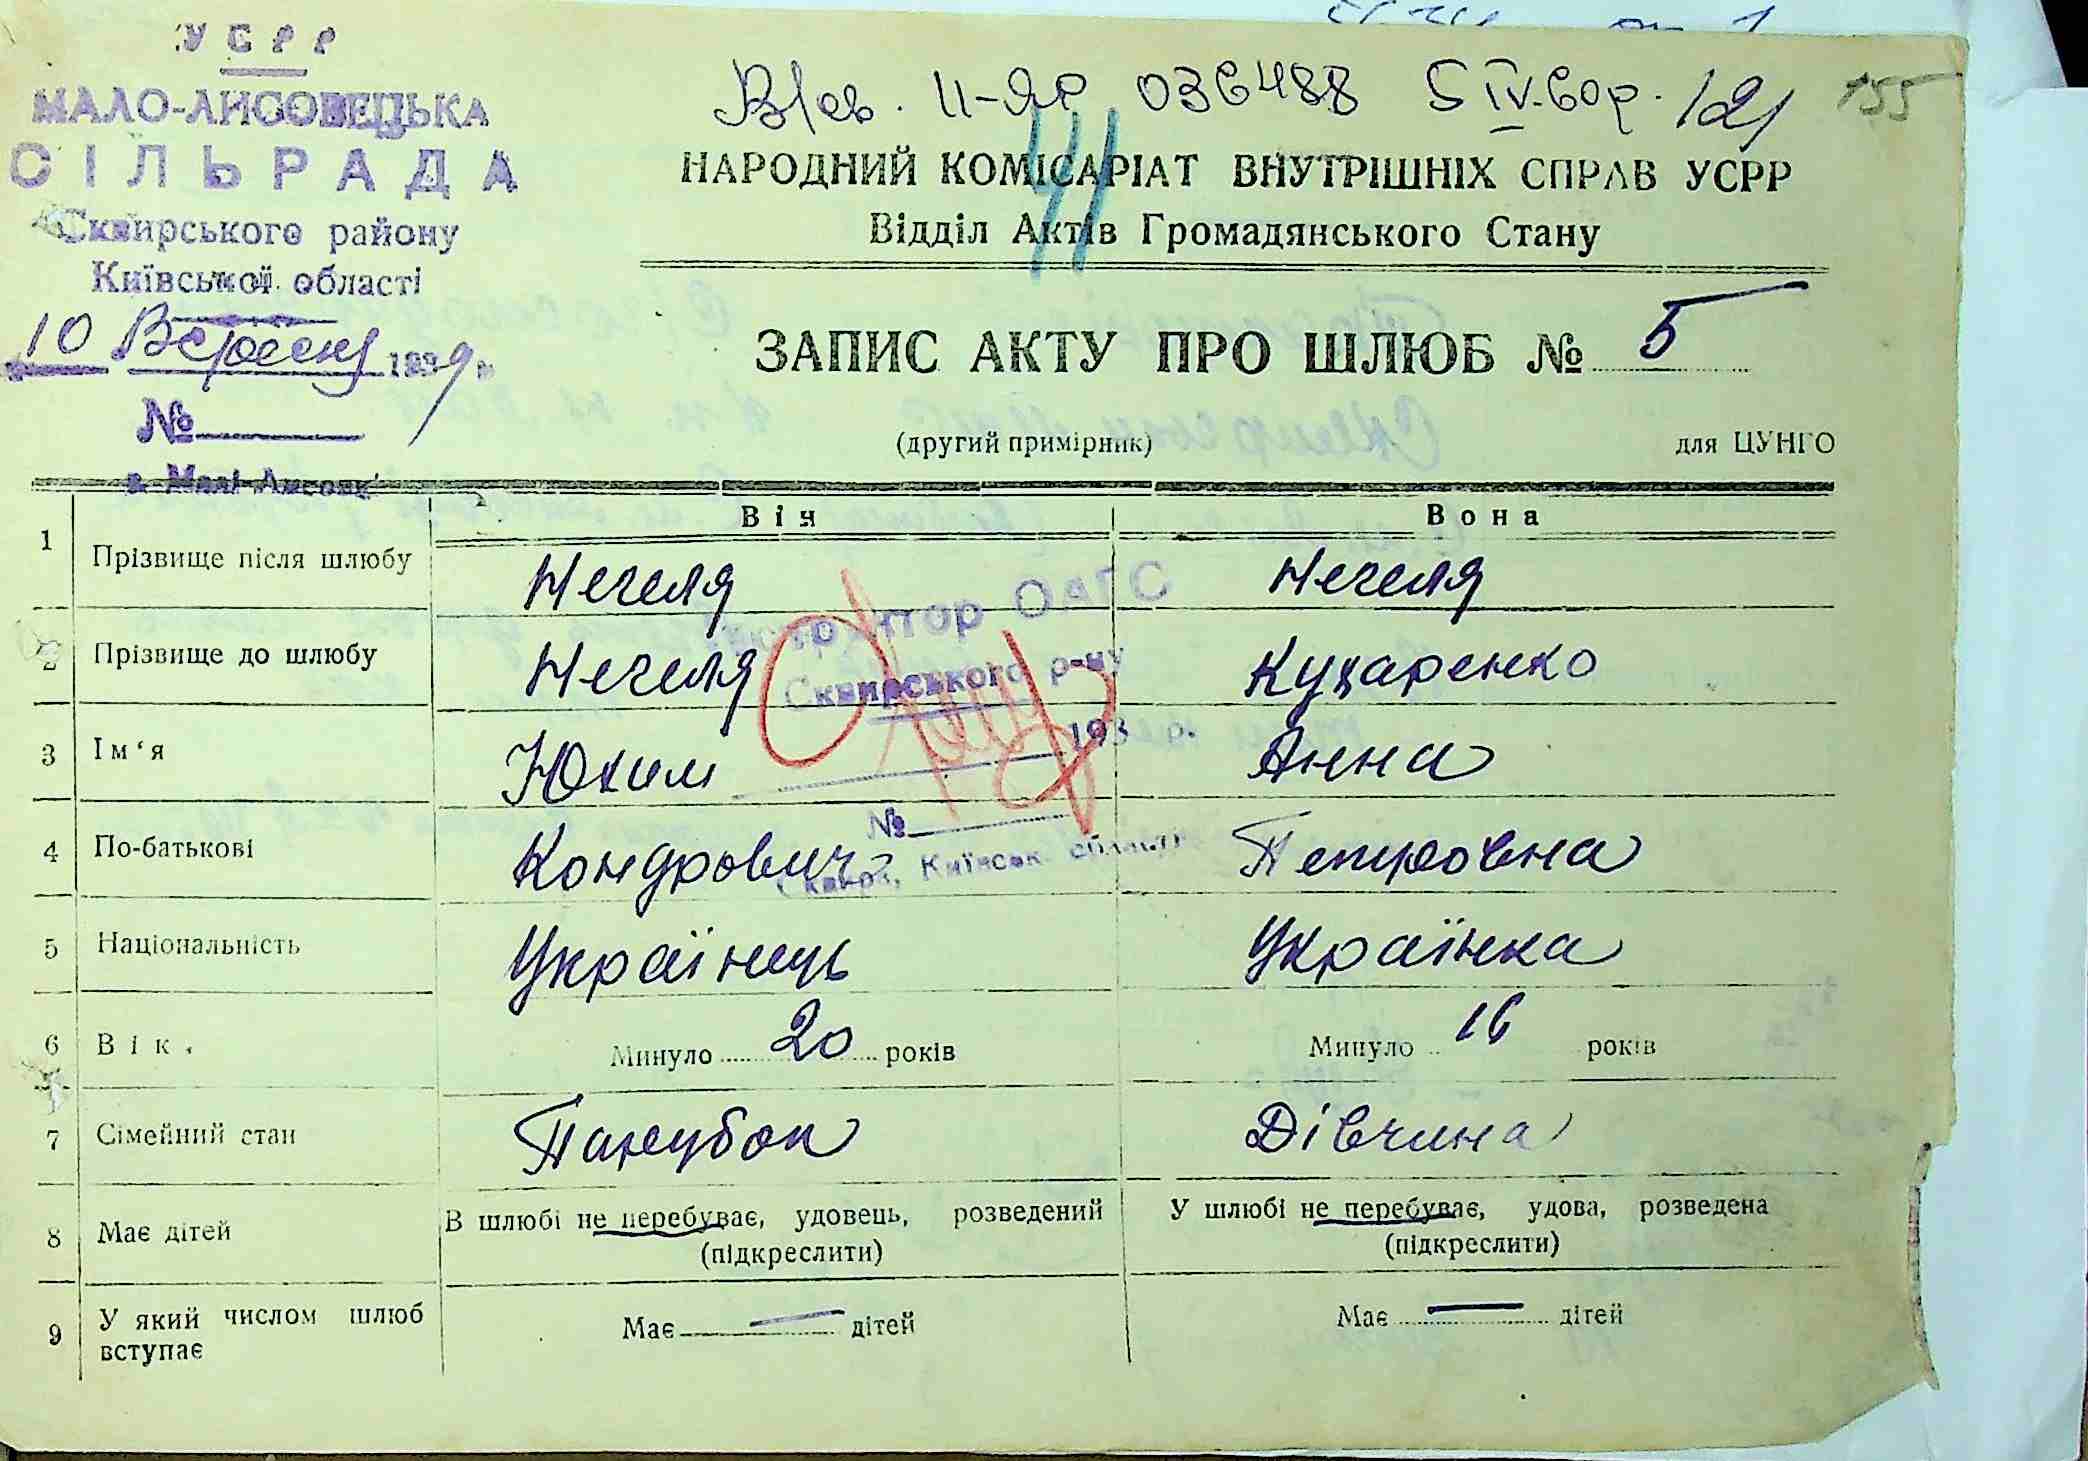 УСРР
МАЛО-ЛИСОВЕЦЬКА
СІЛЬРАДА
Сквирського району
Київської області
10 Вересня 1939 р
№
с. Малі Лисовці
II-ЯР 036488 5 IV-60р. 121 155
41
НАРОДНИЙ КОМІСАРІАТ ВНУТРІШНІХ СПРАВ УСРР
Відділ Актів Громадянського Стану
ЗАПИС АКТУ ПРО ШЛЮБ № 5
(другий примірник) для ЦУНГО
Він Вона
1 Прізвище після шлюбу Негеля Негеля
2 Прізвище до шлюбу Негеля Кухаренко
3 Ім‘я Юхим Анна
4 По-батькові Кондрович Петровна
5 Національність Українець Українка
6 Вік. Минуло 20 років Минуло 16 років
7 Сімейний стан Парубок Дівчина
8 Має дітей В шлюбі не перебуває, удовець, розведений У шлюбі не перебуває, удова, розведена
(підкреслити) (підкреслити)
9 У який числом шлюб вступає Має — дітей Має — дітей
ОАГС
Сквирського р-ну
193 р.
№
Сквира, Київськ. області